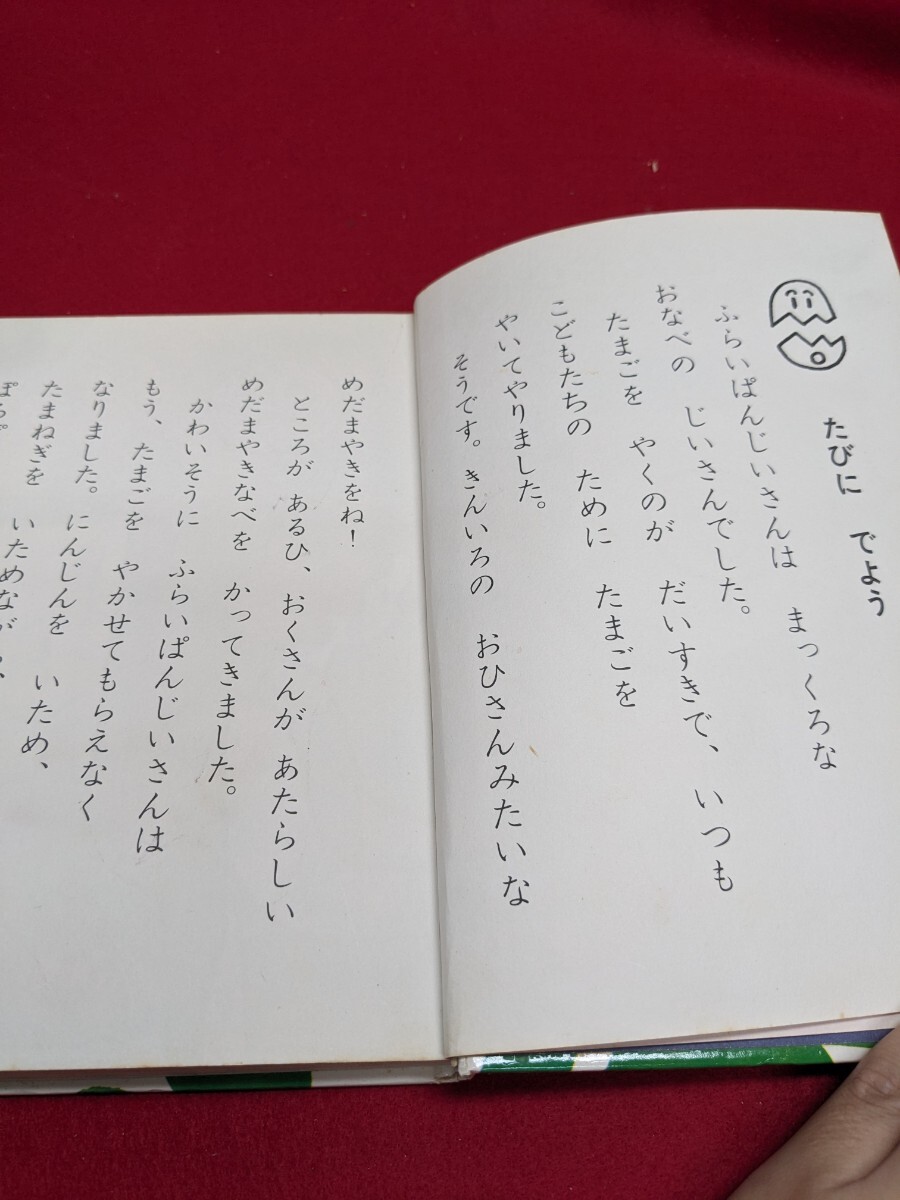 たびに でよう
ふらいぱんじいさんは まっくろな
おなべの じいさんでした。
たまごを やくのが だいすきで、いつも
こどもたちの ために たまごを
やいてやりました。
そうです。きんいろの おひさんみたいな
めだまやきをね！
ところが あるひ、おくさんが あたらしい
めだまやきなべを かってきました。
かわいそうに ふらいぱんじいさんは
もう、たまごを やかせてもらえなく
なりました。にんじんを いため、
たまねぎを いためながら、